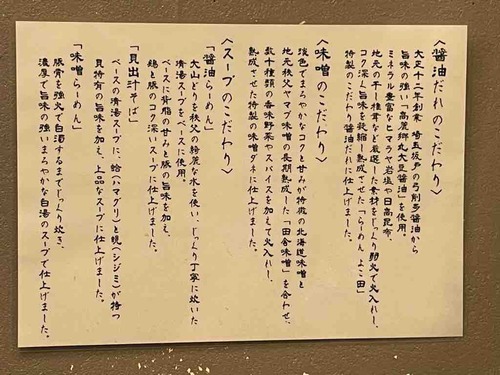 〈醤油だれのこだわり〉
大正十二年創業 埼玉坂戸の弓削多醤油から
旨味の強い「高麗郷丸大豆醤油」を使用。
ミネラル豊富なヒマラヤ岩塩や日高昆布、
地元の干し椎茸など厳選した素材をじっくり弱火で火入れし、
コク深く旨味を凝縮し熟成させた「らーめん よこ田」
特製のこだわり醤油だれに仕上げました。
〈味噌のこだわり〉
淡色でまろやかなコクと甘みが特徴の北海道味噌と
地元秩父ヤマブ味噌の長期熟成した「田舎味噌」を合わせ、
数十種類の香味野菜やスパイスを加えて火入れし、
熟成させた特製の味噌ダネに仕上げました。
〈スープのこだわり〉
「醤油らーめん」
大山どりを秩父の綺麗な水を使い、じっくり丁寧に炊いた
清湯スープをベースに使用
ベースに背脂の甘みと豚の旨味を加え、
鶏と豚のコク深いスープに仕上げました。
「貝出汁そば」
ベースの清湯スープに、蛤(ハマグリ)と蜆(シジミ)が持つ
貝特有の旨味を加え、上品なスープに仕上げました。
「味噌らーめん」
豚骨を強火で白濁するまでじっくり炊き、
濃厚で旨味の強いまろやかな白湯のスープで仕上げました。